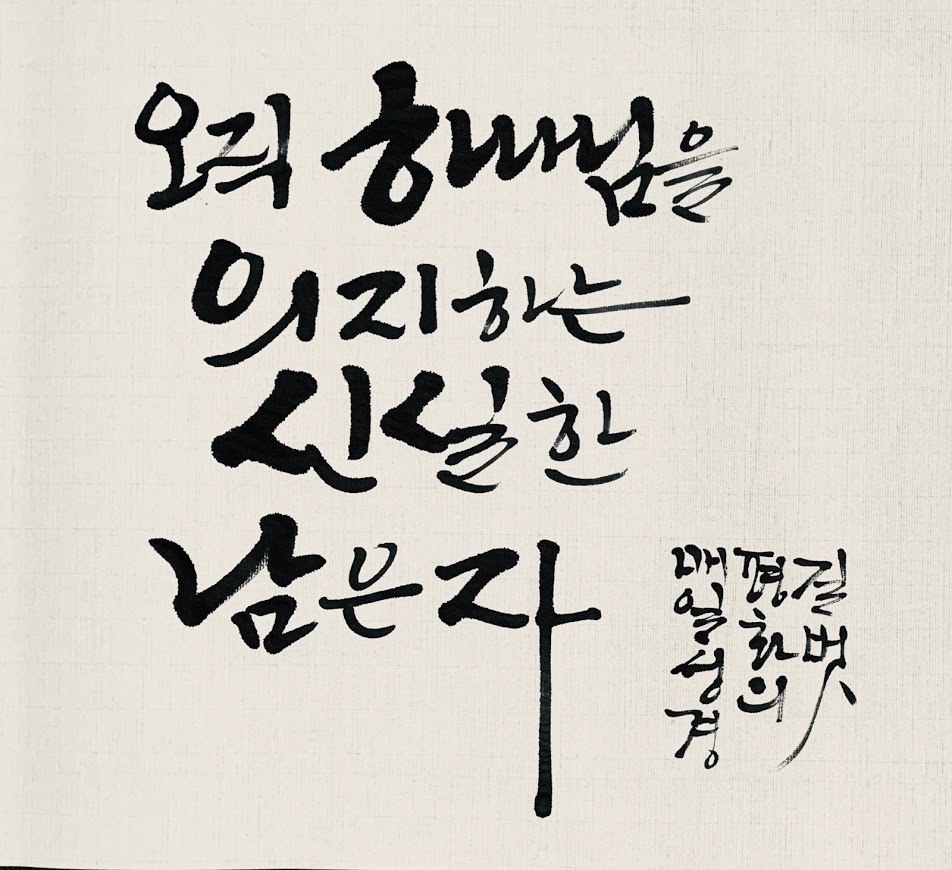 오직 하나님을
의지하는
신실한
남은 자
매일성경
평화의
길벗